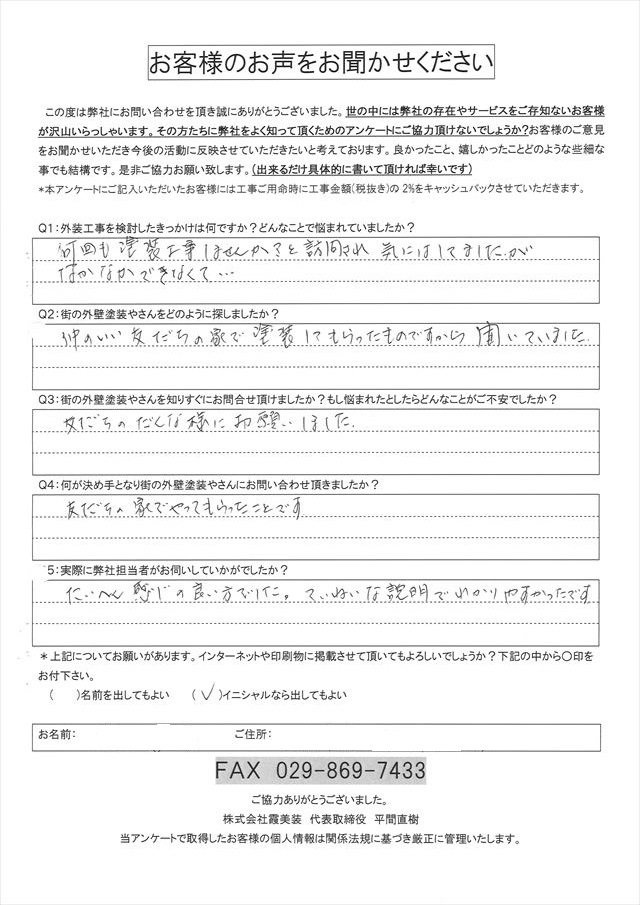 お客様のお声をお聞かせください
この度は弊社にお問い合わせを頂き誠にありがとうございました。世の中には弊社の存在やサービスをご存知ないお客様
が沢山いらっしゃいます。その方たちに弊社をよく知って頂くためのアンケートにご協力頂けないでしょうか?お客様のご意見
をお聞かせいただき今後の活動に反映させていただきたいと考えております。良かったこと、嬉しかったことどのような些細な
事でも結構です。是非ご協力お願い致します。(出来るだけ具体的に書いて頂ければ幸いです)
*本アンケートにご記入いただいたお客様には工事ご用命時に工事金額(税抜き)の 2%をキャッシュバックさせていただきます。
Q1:外装工事を検討したきっかけは何ですか?どんなことで悩まれていましたか?
何回も塗装工事しませんか?と訪問され 気にはしてましたが
なかなかできなくて…
Q2:街の外壁塗装やさんをどのように探しましたか?
仲のいい友だちの家で塗装してもらったものですから 聞いていました.
Q3:街の外壁塗装やさんを知りすぐにお問合せ頂けましたか?もし悩まれたとしたらどんなことがご不安でしたか?
友だちのだんな様にお願いしました.
Q4:何が決め手となり街の外壁塗装やさんにお問い合わせ頂きましたか?
友だちの家でやってもらったことです
5:実際に弊社担当者がお伺いしていかがでしたか?
たいへん感じの良い方でした。ていねいな説明でわかりやすかったです
*上記についてお願いがあります。インターネットや印刷物に掲載させて頂いてもよろしいでしょうか?下記の中から〇印を
お付下さい。
( )名前を出してもよい (✓)イニシャルなら出してもよい
お名前: ご住所:
FAX 029-869-7433
ご協力ありがとうございました。
株式会社霞美装 代表取締役 平間直樹
当アンケートで取得したお客様の個人情報は関係法規に基づき厳正に管理いたします。